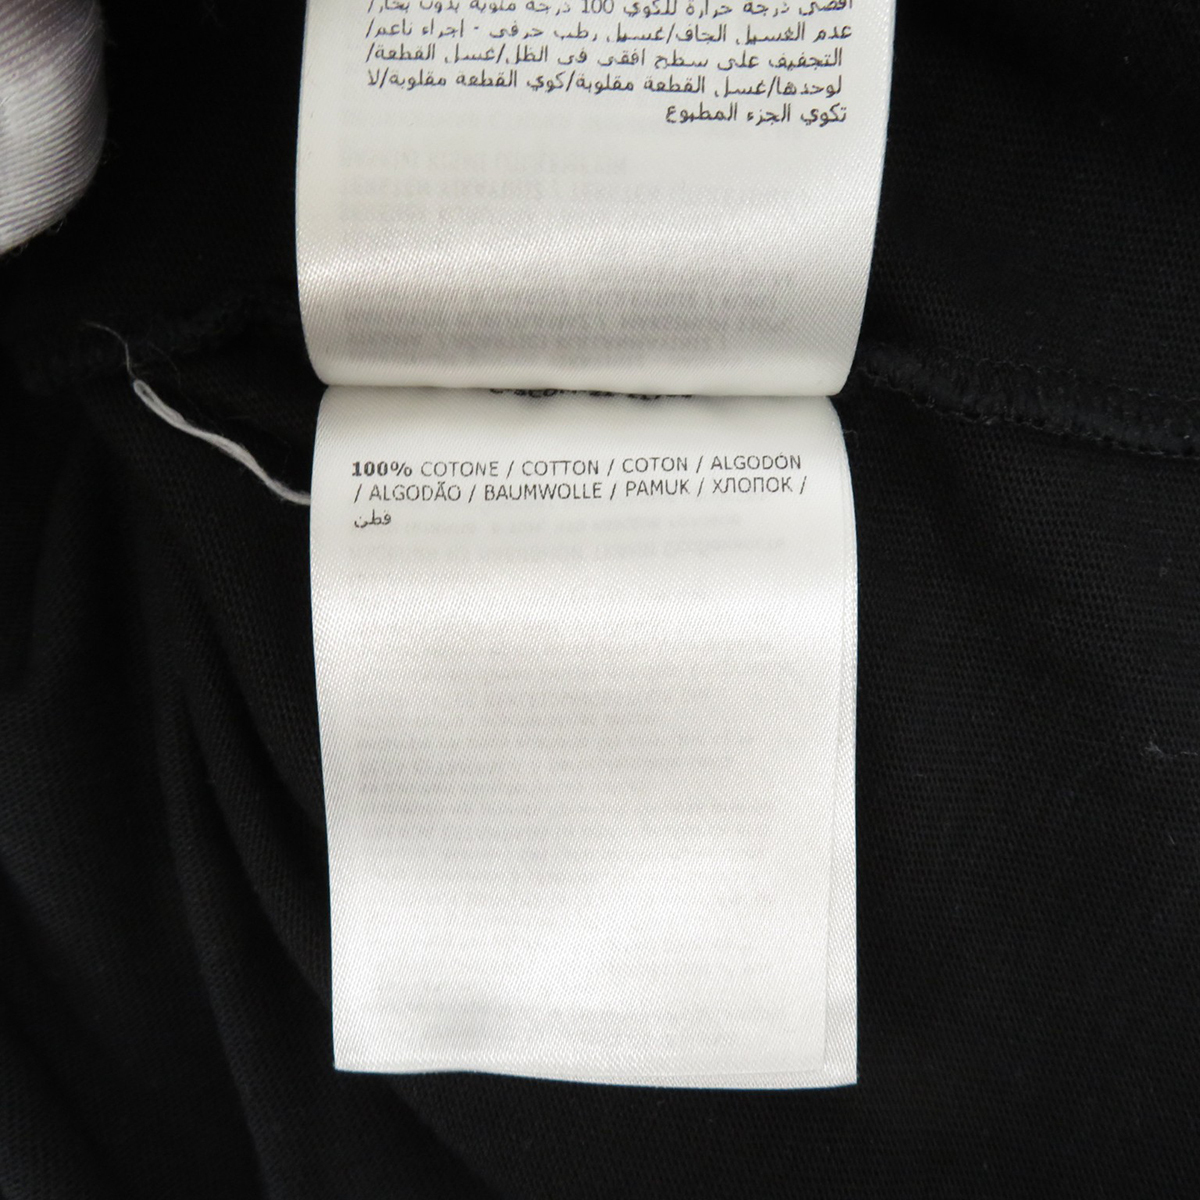 أقصى درجة حرارة للكوي 100 درجة مئوية بدون بخار/
عدم الغسيل الجاف/غسيل رطب حرفي - اجراء ناعم/
التجفيف على سطح افقي في الظل/غسل القطعة/
لوحدها/غسل القطعة مقلوبة/كوي القطعة مقلوبة/لا
تكوي الجزء المطبوع
100% COTONE / COTTON / COTON / ALGODÓN
/ ALGODÃO / BAUMWOLLE / PAMUK / ХЛОПОК /
قطن